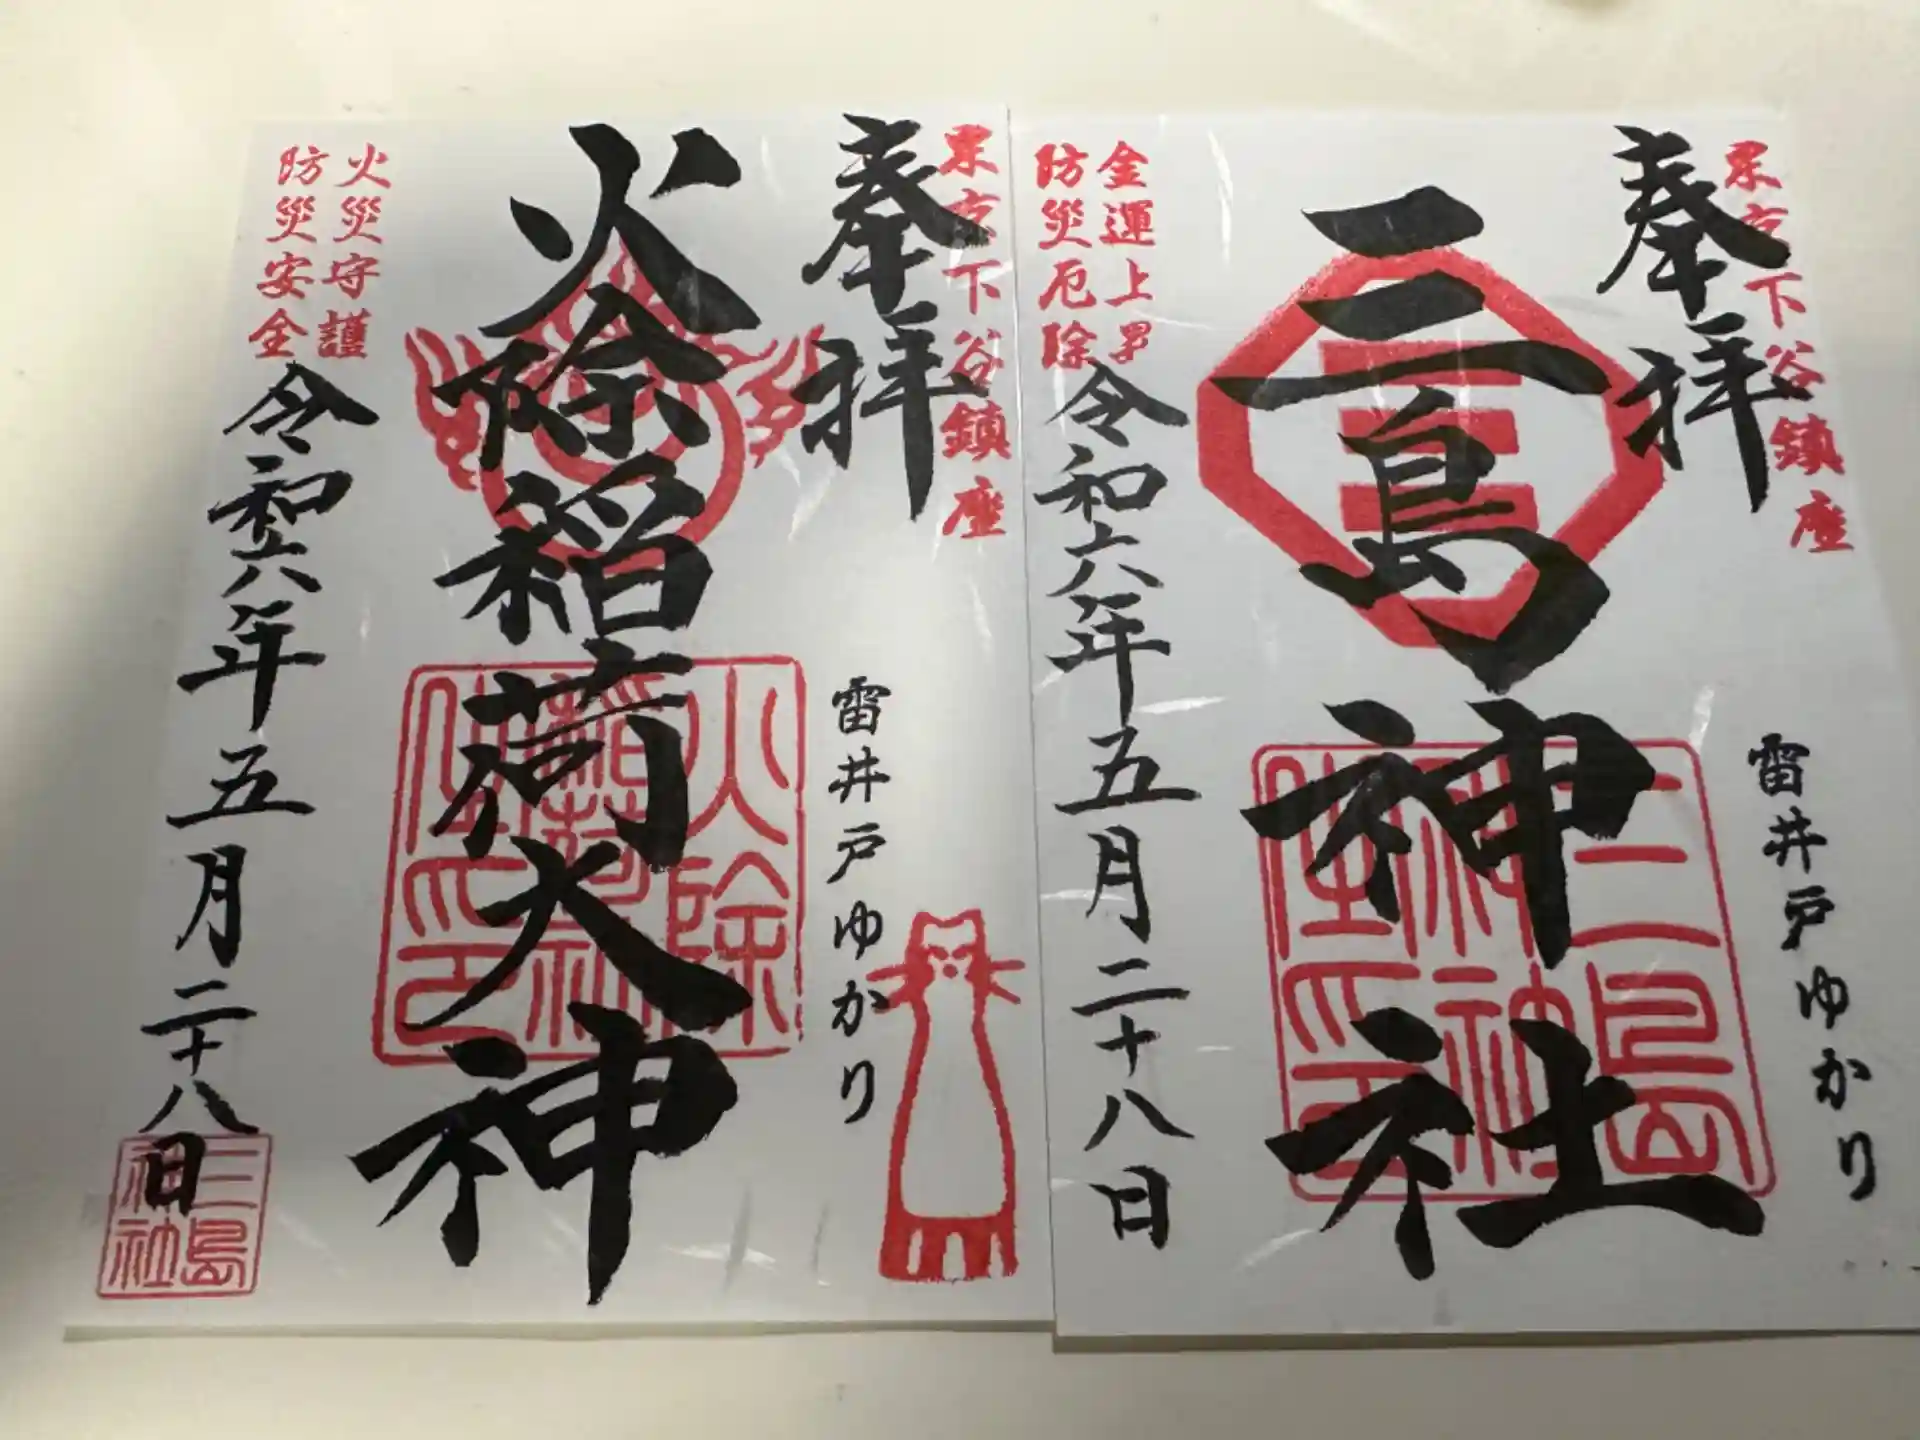 東京下谷鎮座
奉拝
三島神社
雷井戸ゆかり
三島
神社
金運上昇
防災厄除
令和六年五月二十八日
東京下谷鎮座
奉拝
火除稲荷大神
雷井戸ゆかり
火除
稲荷社
火災守護
防災安全
令和六年五月二十八日
三島
神社